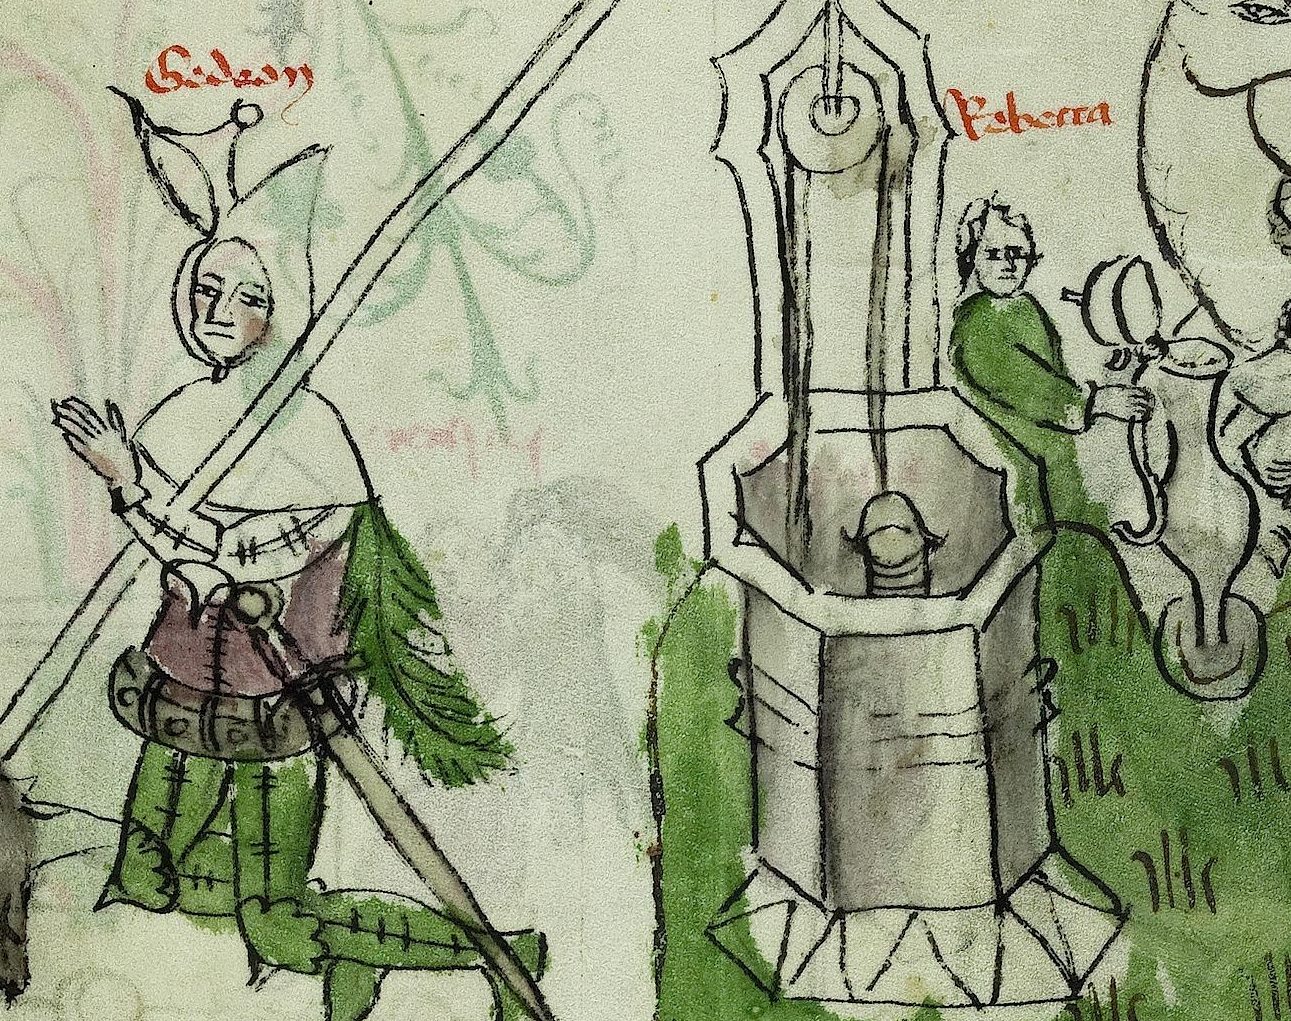 Gedeon
Rebecca